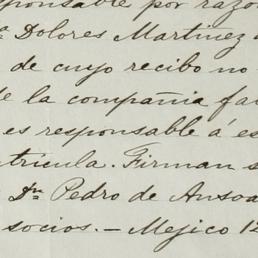 sponsable por razo
ª Dolores Martinez
de cuyo recibo no
de la compañia fa
es responsable á es
trícula. Firman s
Dn Pedro de Ansoa
socios. — Mejico 12